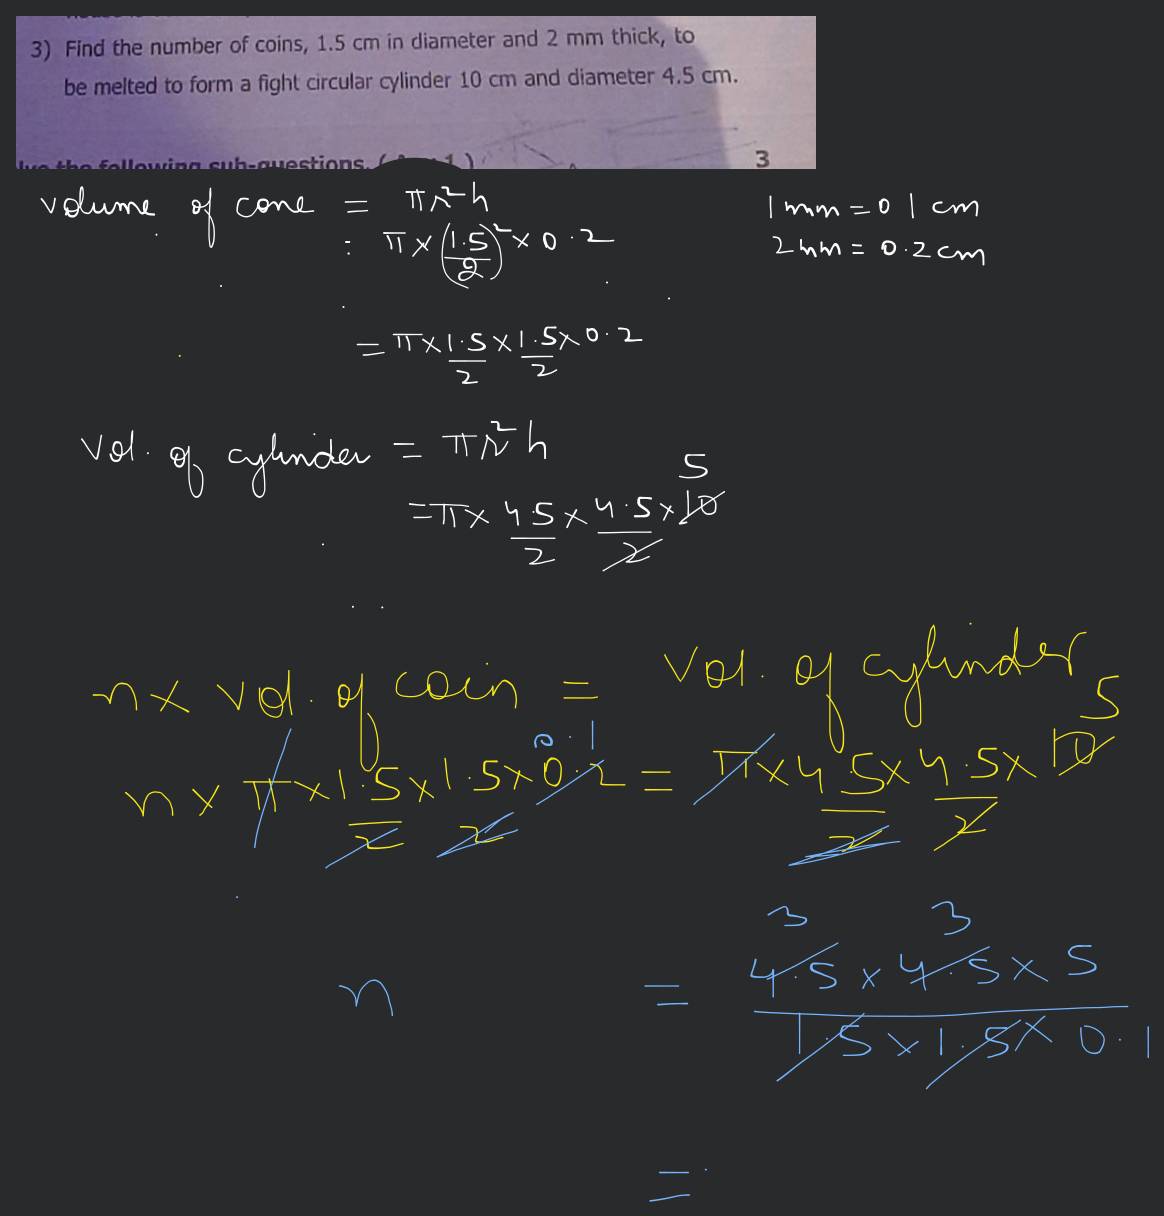 3) Find the number of coins, 1.5 cm in diameter and 2 mm thick, to
be melted to form a fight circular cylinder 10 cm and diameter 4.5 cm.
the following sub-questions.
3
volume of cone = πr²h
1mm = 0 1 cm
: π × (1.5/2)² × 0.2
2mm = 0.2cm
= π × 1.5/2 × 1.5/2 × 0.2
Vol. of cylinder = πr²h
5
= π × 4.5/2 × 4.5/2 × 10
n × vol. of coin = Vol. of cylinder
0.1 5
n × π × 1.5/2 × 1.5/2 × 0.2 = π × 4.5/2 × 4.5/2 × 10
3 3
n = 4.5 × 4.5 × 5
1.5 × 1.5 × 0.1
=